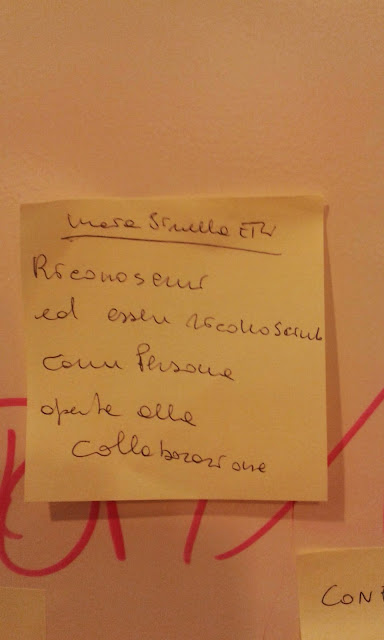 Riconoscersi
ed essere riconosciuti
come Persone
aperte alla
collaborazione
CON